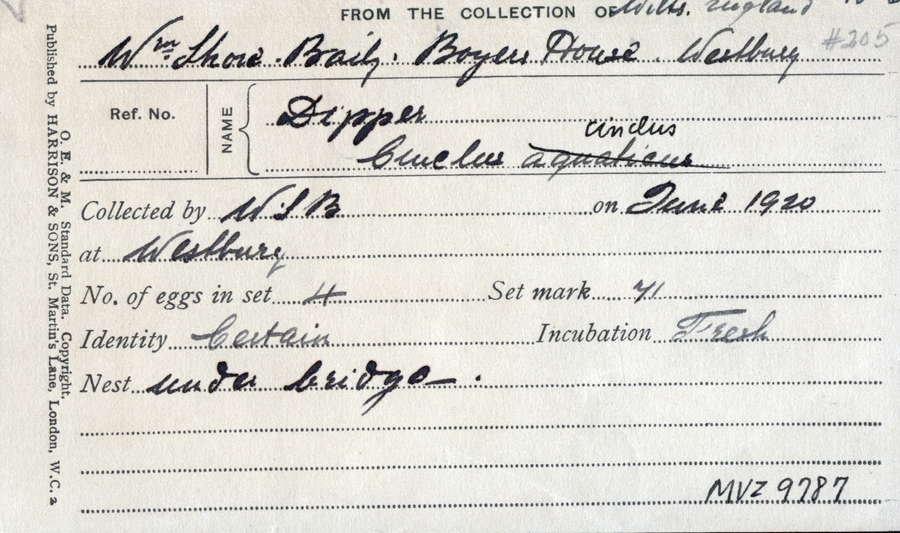 FROM THE COLLECTION OF Wilts. England
Wm Shore Baily. Boyers House. Westbury #205
Ref. No.
NAME
Dipper
cinclus
Cinclus aquaticus
Collected by W S B on June 1920
at Westbury
No. of eggs in set 4 Set mark 71
Identity Certain Incubation Fresh
Nest under bridge.
MVZ 9787
O. E. & M. Standard Data. Copyright.
Published by HARRISON & SONS, St. Martin's Lane, London, W.C. 2